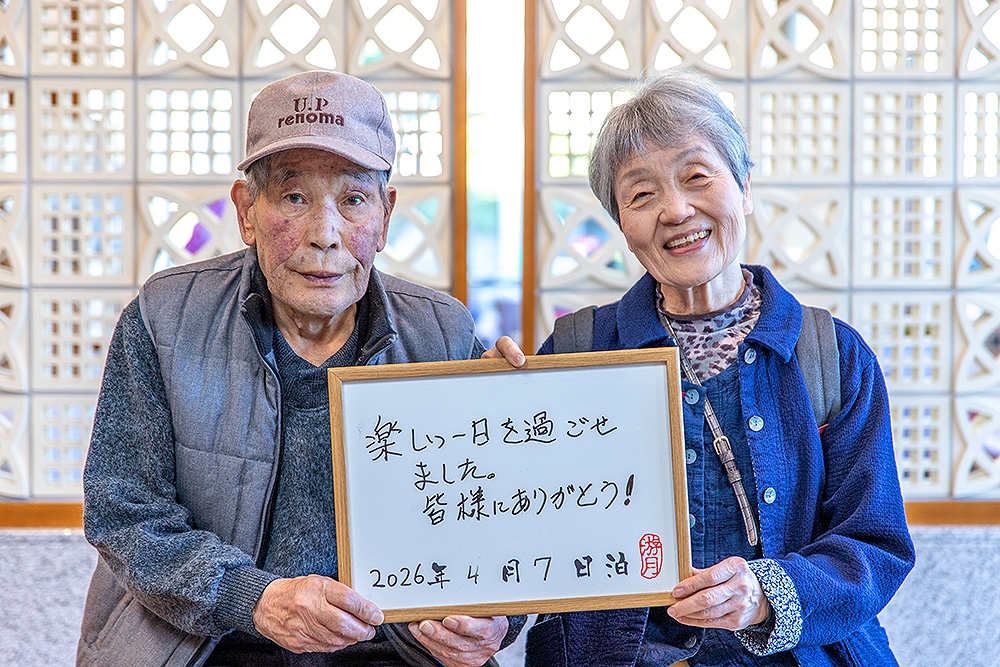 U.P
renoma
楽しい一日を過ごせ
ました。
皆様にありがとう!
2026年 4月7日泊
游月